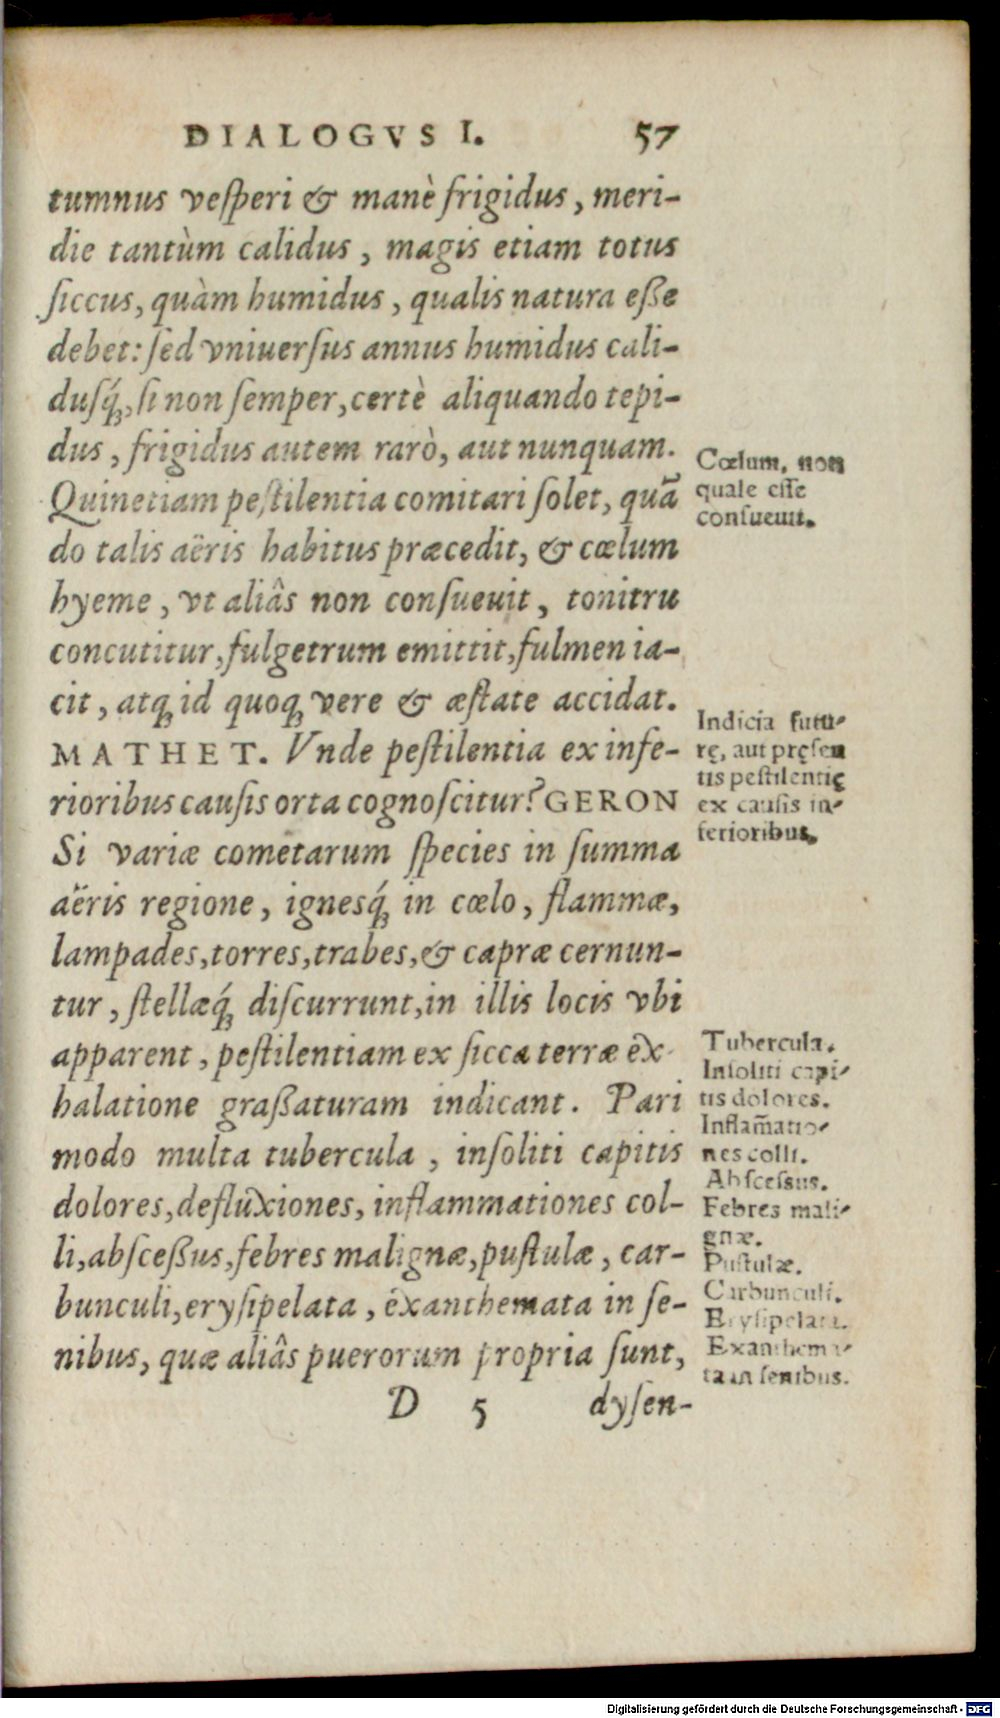 DIALOGVS I. 57
tumnus veſperi & manè frigidus, meri-
die tantùm calidus, magis etiam totus
ſiccus, quàm humidus, qualis natura eße
debet: ſed vniuerſus annus humidus cali-
duſq́;, ſi non ſemper, certè aliquando tepi-
dus, frigidus autem rarò, aut nunquam.
Quinetiam peſtilentia comitari ſolet, quā
do talis aëris habitus præcedit, & cœlum
hyeme, vt aliâs non conſueuit, tonitru
concutitur, fulgetrum emittit, fulmen ia-
cit, atq; id quoq; vere & æſtate accidat.
MATHET. Vnde peſtilentia ex infe-
rioribus cauſis orta cognoſcitur? GERON
Si variæ cometarum ſpecies in ſumma
aëris regione, igneſq́; in cœlo, flammæ,
lampades, torres, trabes, & capræ cernun-
tur, ſtellæq́; diſcurrunt, in illis locis vbi
apparent, peſtilentiam ex ſicca terræ ex-
halatione graßaturam indicant. Pari
modo multa tubercula, inſoliti capitis
dolores, defluxiones, inflammationes col-
li, abſceßus, febres malignæ, puſtulæ, car-
bunculi, eryſipelata, exanthemata in ſe-
nibus, quæ aliâs puerorum propria ſunt,
D 5 dyſen-
Cœlum, non
quale eſſe
conſueuit.
Indicia futu-
rę, aut pręſen
tis peſtilentię
ex cauſis in-
ferioribus.
Tubercula.
Inſoliti capi-
tis dolores.
Inflam̄atio-
nes colli.
Abſceſsus.
Febres mali-
gnæ.
Puſtulæ.
Carbunculi.
Eryſipelata.
Exanthema-
ta in ſenibus.
Digitalisierung gefördert durch die Deutsche Forschungsgemeinschaft - DFG